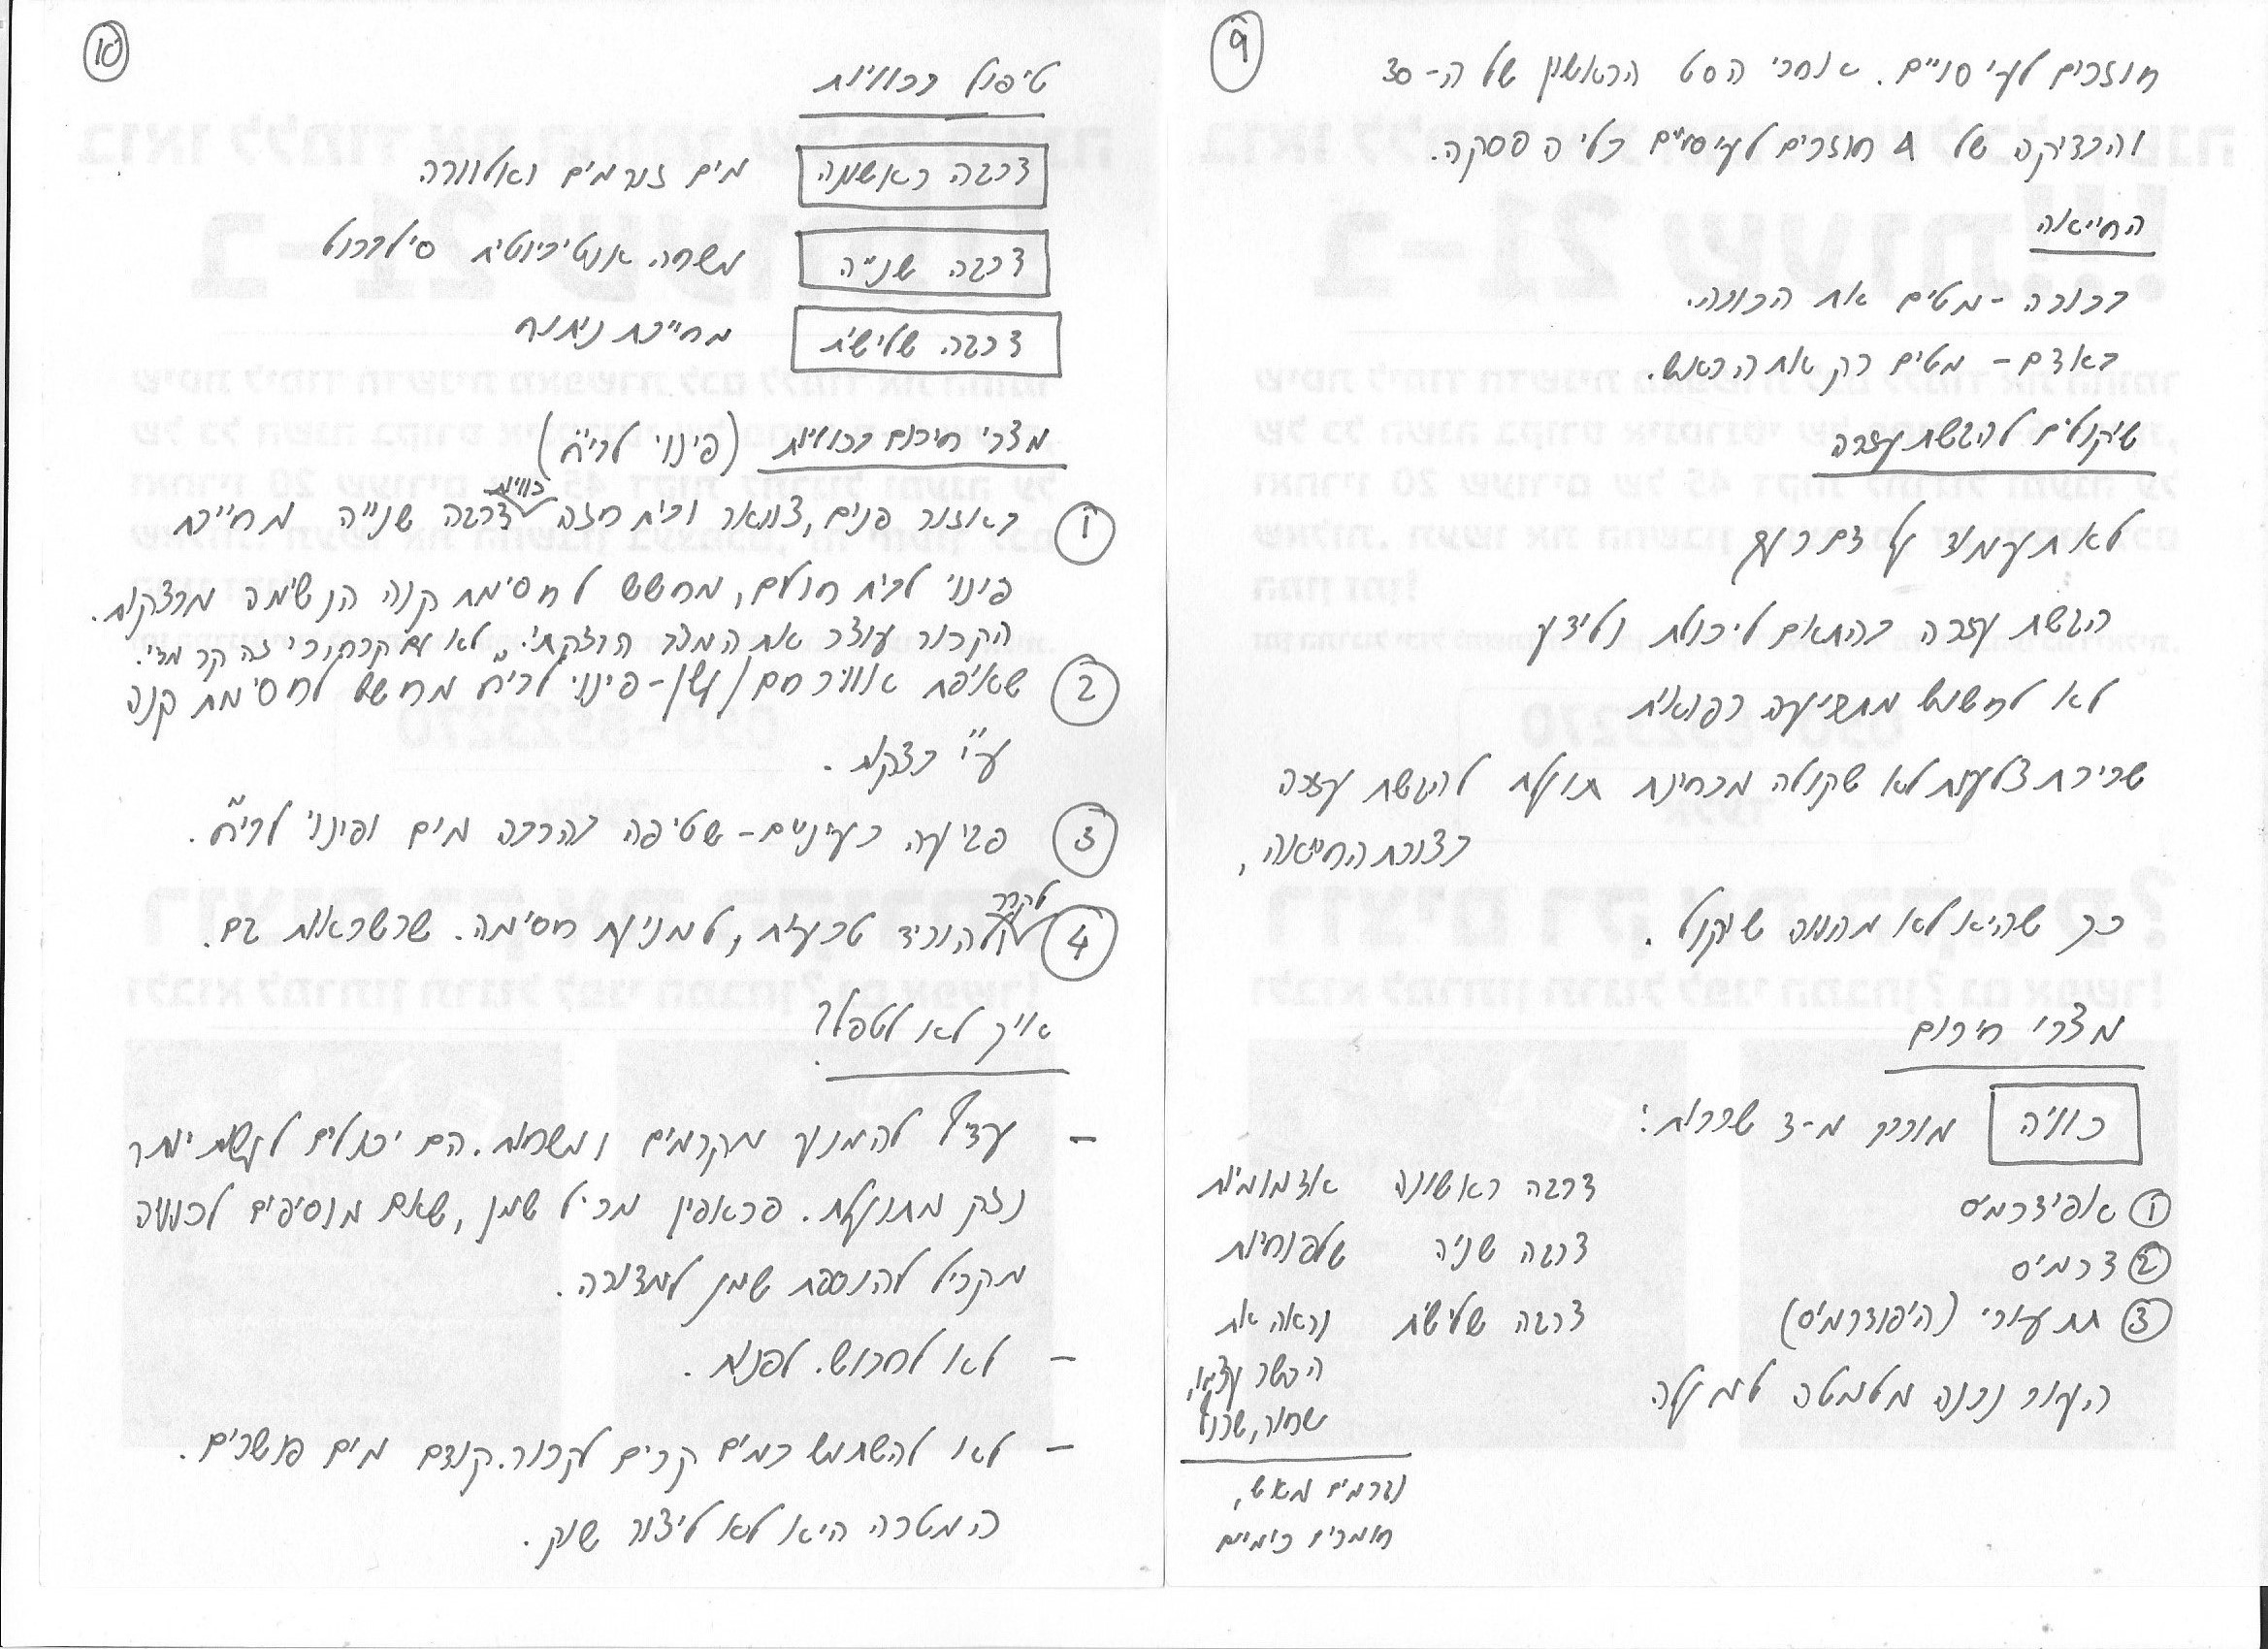 9
חוזרים לעיסויים. אחרי הסט הראשון של ה-30
והבדיקה של A חוזרים לעיסויים בלי הפסקה.
החייאה
בבובה - מטים את הבובה.
באדם - מטים רק את הראש.
שיקולים להגשת עזרה
לא תעמוד על דם רעך
הגשת עזרה בהתאם ליכולת ולידע
לא לחשוש מתביעה רפואית
שבירת צלעות לא שקולה מבחינת תועלת להגשת עזרה
בצורת החייאה,
כך שהיא לא מהווה שיקול.
מצבי חירום
כוויה מורכב מ-3 שכבות:
① אפידרמיס
② דרמיס
③ תת עורי (היפודרמיס)
העור נבנה מלמטה למעלה
דרגה ראשונה אדמומיות
דרגה שניה שלפוחיות
דרגה שלישית נראה את
הבשר עצמו,
שחור, שרוף
נגרמים מאש,
חומרים כימיים
10
טיפול בכוויות
דרגה ראשונה מים זורמים ואלוורה
דרגה שנייה משחה אנטיביוטית סילברול
דרגה שלישית מחייבת ניתוח
מצבי חירום בכוויות (פינוי לבי"ח)
כוויות
① באזור פנים, צוואר ובית חזה דרגה שנייה מחייבת
פינוי לבית חולים, מחשש לחסימת קנה הנשימה מבצקות.
הקרור עוצר את המצב הבצקתי. לא עם קרח, כי זה קר מדי.
② שאיפת אוויר חם/עשן - פינוי לבי"ח מחשש לחסימת קנה
ע"י בצקת.
③ פגיעה בעיניים - שטיפה בהרבה מים ופינוי לבי"ח.
לקרר
④ להוריד טבעות, למניעת חסימה. שרשראות גם.
איך לא לטפל?
- עדיף להמנע מקרמים ומשחות. הם יכולים לעשות יותר
נזק מתועלת. פראפין מכיל שמן, שאם מוסיפים לכוויה
מקביל להוספת שמן למדורה.
- לא לחבוש. לפנות.
- לא להשתמש במים קרים לקרור. קודם מים פושרים.
המטרה היא לא ליצור שוק.